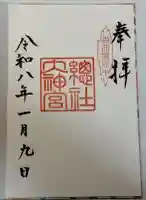 奉拝
總社
大神宮
令和八年一月九日